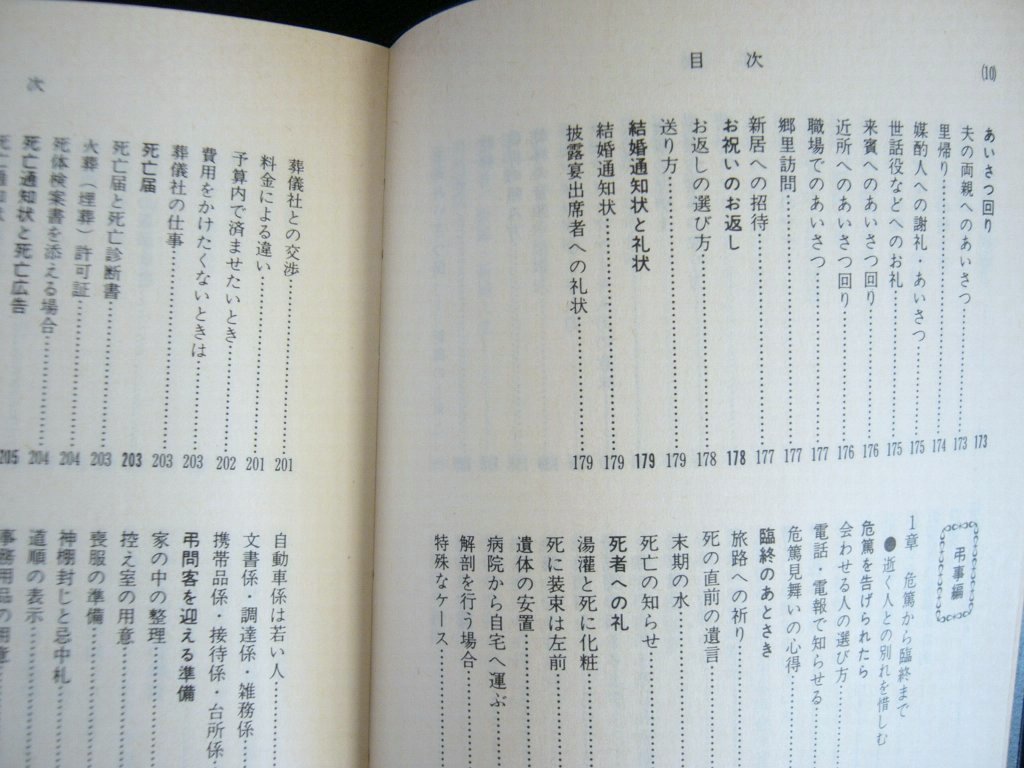 (10)
目次
あいさつ回り 173
夫の両親へのあいさつ 173
里帰り 174
媒酌人への謝礼・あいさつ 175
世話役などへのお礼 175
来賓へのあいさつ回り 176
近所へのあいさつ回り 176
職場でのあいさつ 177
郷里訪問 177
新居への招待 177
お祝いのお返し 178
お返しの選び方 178
送り方 179
結婚通知状と礼状 179
結婚通知状 179
披露宴出席者への礼状 179
弔事編
1章 危篤から臨終まで
●逝く人との別れを惜しむ
危篤を告げられたら
会わせる人の選び方
電話・電報で知らせる
危篤見舞いの心得
臨終のあととき
旅路への祈り
死の直前の遺言
末期の水
死亡の知らせ
死者への礼
湯灌と死に化粧
死に装束は左前
遺体の安置
病院から自宅へ運ぶ
解剖を行う場合
特殊なケース
次
葬儀社との交渉 201
料金による違い 201
予算内で済ませたいとき 202
費用をかけたくないときは 203
葬儀社の仕事 203
死亡届 203
死亡届と死亡診断書 203
火葬（埋葬）許可証 204
死体検案書を添える場合 204
死亡通知状と死亡広告 205
自動車係は若い人
文書係・調達係・雑務係
携帯品係・接待係・台所係
弔問客を迎える準備
家の中の整理
控え室の用意
喪服の準備
神棚封じと忌中札
道順の表示
事務用品の用意